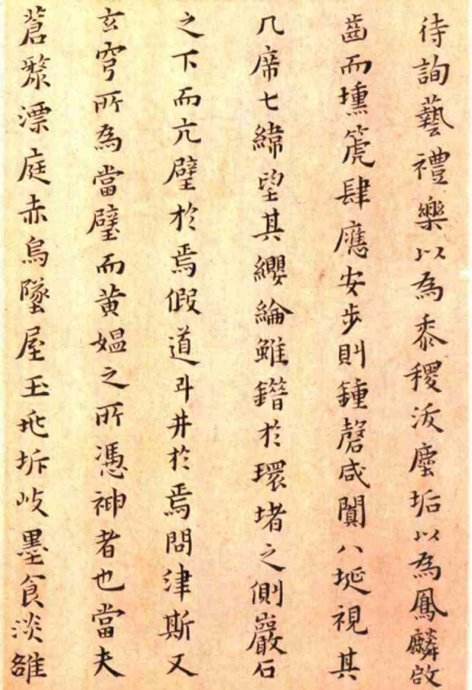 待詢藝禮樂以為黍稷汳塵垢以為鳳麟啟
齒而壎箎肆應安步則鍾磬咸闐八埏視其
几席七緯望其纓綸雖鐕於環堵之側巖石
之下而亢壁於焉假道斗井於焉問津斯又
玄穹所為當璧而黄媼之所憑神者也當夫
蒼漦漂庭赤烏墜屋玉兆坼岐墨食淡雒